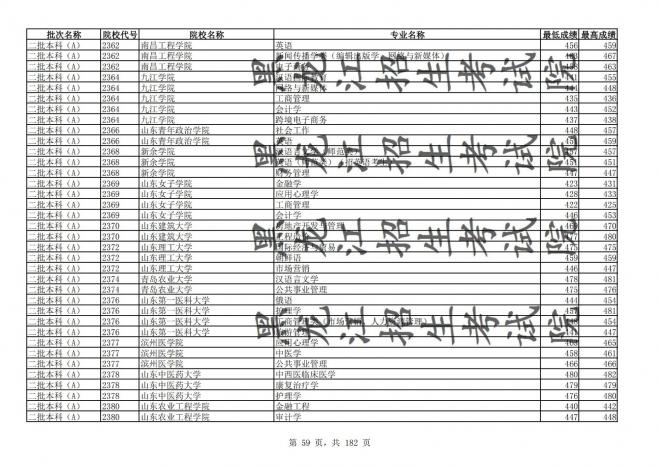 批次名称 院校代号 院校名称 专业名称 最低成绩 最高成绩
二批本科(A) 2362 南昌工程学院 英语 456 459
二批本科(A) 2362 南昌工程学院 467
二批本科(A) 2362 南昌工程学院 463
二批本科(A) 2364 九江学院 455
二批本科(A) 2364 九江学院 网络与新媒体 448
二批本科(A) 2364 九江学院 工商管理 435 436
二批本科(A) 2364 九江学院 会计学 443
二批本科(A) 2364 九江学院 跨境电子商务 437 438
二批本科(A) 2366 山东青年政治学院 社会工作 448 457
二批本科(A) 2366 山东青年政治学院 英语 459
二批本科(A) 2368 新余学院 457
二批本科(A) 2368 新余学院 451 451
二批本科(A) 2368 新余学院 财务管理 447
二批本科(A) 2369 山东女子学院 金融学 423 431
二批本科(A) 2369 山东女子学院 应用心理学 428 433
二批本科(A) 2369 山东女子学院 工商管理 422 425
二批本科(A) 2369 山东女子学院 会计学 446 453
二批本科(A) 2370 山东建筑大学 房地产开发与管理 470
二批本科(A) 2370 山东建筑大学 480
二批本科(A) 2372 山东理工大学 国际经济与贸易 475
二批本科(A) 2372 山东理工大学 朝鲜语 459
二批本科(A) 2372 山东理工大学 市场营销 446 447
二批本科(A) 2374 青岛农业大学 汉语言文学 478 481
二批本科(A) 2374 青岛农业大学 公共事业管理 475 476
二批本科(A) 2376 山东第一医科大学 俄语 444 454
二批本科(A) 2376 山东第一医科大学 护理学 457
二批本科(A) 2376 山东第一医科大学 454
二批本科(A) 2376 山东第一医科大学 447
二批本科(A) 2377 滨州医学院 应用心理学 465
二批本科(A) 2377 滨州医学院 中医学 458 461
二批本科(A) 2377 滨州医学院 公共事业管理 466 466
二批本科(A) 2378 山东中医药大学 中西医临床医学 480 482
二批本科(A) 2378 山东中医药大学 康复治疗学 479 479
二批本科(A) 2378 山东中医药大学 护理学 476 480
二批本科(A) 2380 山东农业工程学院 金融工程 440 442
二批本科(A) 2380 山东农业工程学院 审计学 447 448
黑龙江招生考试院
黑龙江招生考试院
第 59 页,共 182 页